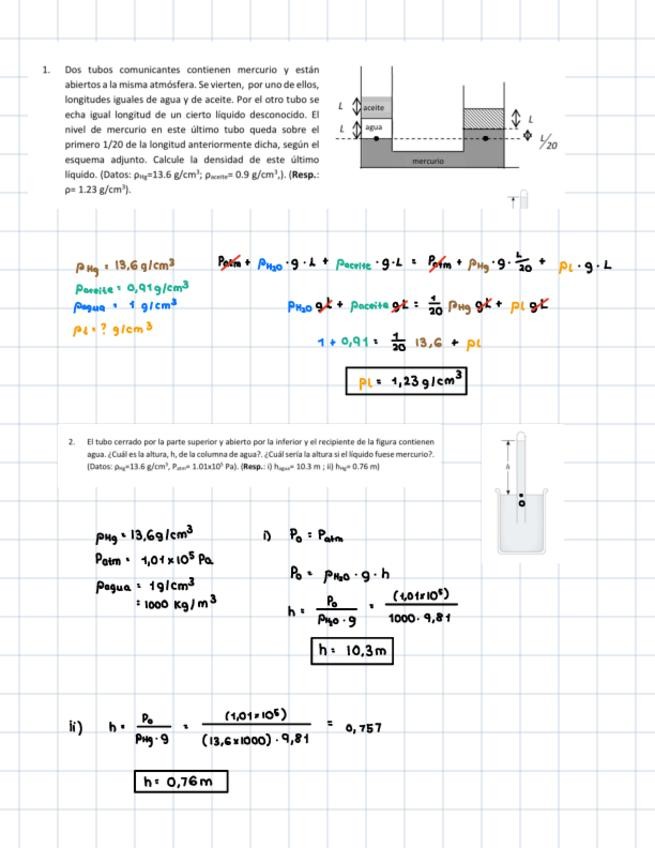 1. Dos tubos comunicantes contienen mercurio y están
abiertos a la misma atmósfera. Se vierten, por uno de ellos,
longitudes iguales de agua y de aceite. Por el otro tubo se
echa igual longitud de un cierto líquido desconocido. El
nivel de mercurio en este último tubo queda sobre el
primero 1/20 de la longitud anteriormente dicha, según el
esquema adjunto. Calcule la densidad de este último
líquido. (Datos: ρHg=13.6 g/cm³; ρaceite= 0.9 g/cm³,). (Resp.:
ρ= 1.23 g/cm³).
L aceite
L agua
L
L/20
mercurio
ρHg = 13,6 g/cm³
ρaceite = 0,91 g/cm³
ρagua = 1 g/cm³
ρL = ? g/cm³
Patm + ρH₂O · g · L + ρaceite · g · L = Patm + ρHg · g · L/20 + ρL · g · L
ρH₂O gL + ρaceite gL = 1/20 ρHg gL + ρL gL
1 + 0,91 = 1/20 13,6 + ρL
ρL = 1,23 g/cm³
2. El tubo cerrado por la parte superior y abierto por la inferior y el recipiente de la figura contienen
agua. ¿Cuál es la altura, h, de la columna de agua?. ¿Cuál sería la altura si el líquido fuese mercurio?.
(Datos: ρHg=13.6 g/cm³, Patm= 1.01x10⁵ Pa). (Resp.: i) hagua= 10.3 m ; ii) hHg= 0.76 m)
h
ρHg = 13,6 g/cm³
Patm = 1,01 x 10⁵ Pa
ρagua = 1 g/cm³
= 1000 Kg/m³
i) P₀ = Patm
P₀ = ρH₂O · g · h
h = P₀ / ρH₂O · g = (1,01x10⁵) / 1000 · 9,81
h = 10,3 m
ii) h = P₀ / ρHg · g = (1,01x10⁵) / (13,6 x 1000) · 9,81 = 0,757
h = 0,76 m